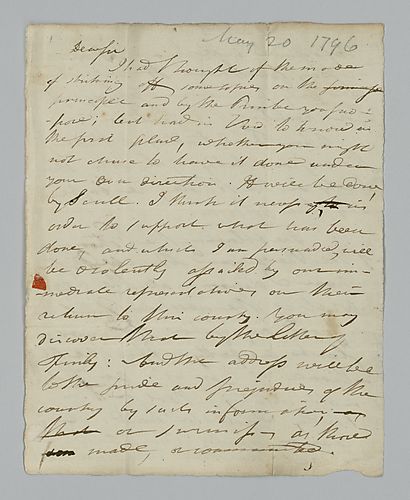 May 20 1796
Dear sir
I had thought of the mode
of striking off some copies on the
principle and by the you pro-
pose; but had in view to know in
the first place, whether you might
not chuse to have it done under
your own direction. It will be done
by Scull. I think it necessy in
order to support what has been
done, and which I am persuaded, will
be violently assailed by our im-
mediate representatives on their
return to this county. You may
discover that by the letter of
Findly: And the address will be
to the pride and prejudices of the
country by such information,
that or surmises as those
made, or